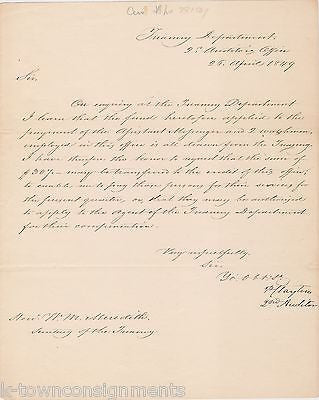 Treasury Department
2d Auditor's Office
25 April 1849
Sir,
On enquiry at the Treasury Department
I learn that the fund heretofore applied to the
payment of the Assistant Messenger and 2 watchmen
employed in this office is all drawn from the Treasury.
I have therefore the honor to request that the sum of
may be transferred to the credit of this office,
to enable me to pay these persons for their services for
the present quarter, or, that they may be authorized
to apply to the Agent of the Treasury Department
for their compensation.
Very respectfully
Sir,
Yr. O b t. S t.
P. Clayton
2nd Auditor
Hon. W. M. Meredith
Secretary of the Treasury
k-townconsignments